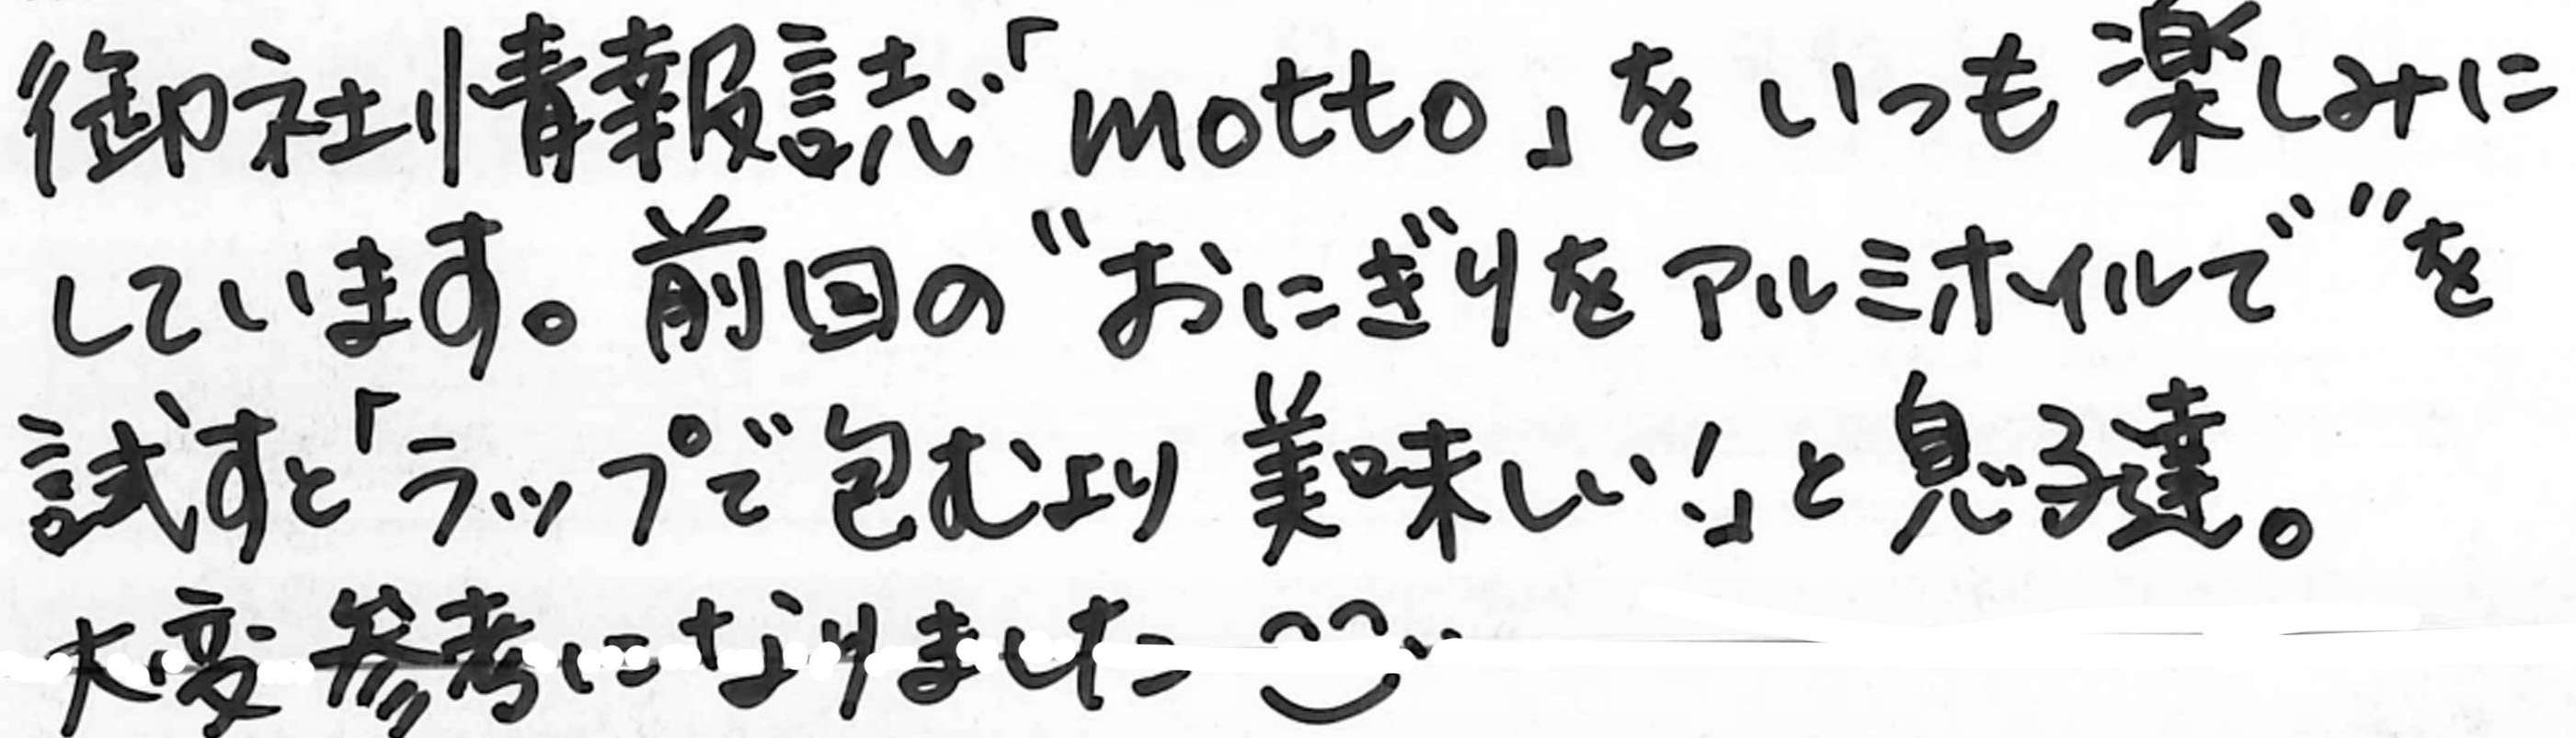 御社情報誌「motto」をいつも楽しみに
しています。前回の"おにぎりをアルミホイルで"を
試すと「ラップで包むより美味しい!」と息子達。
大変参考になりました